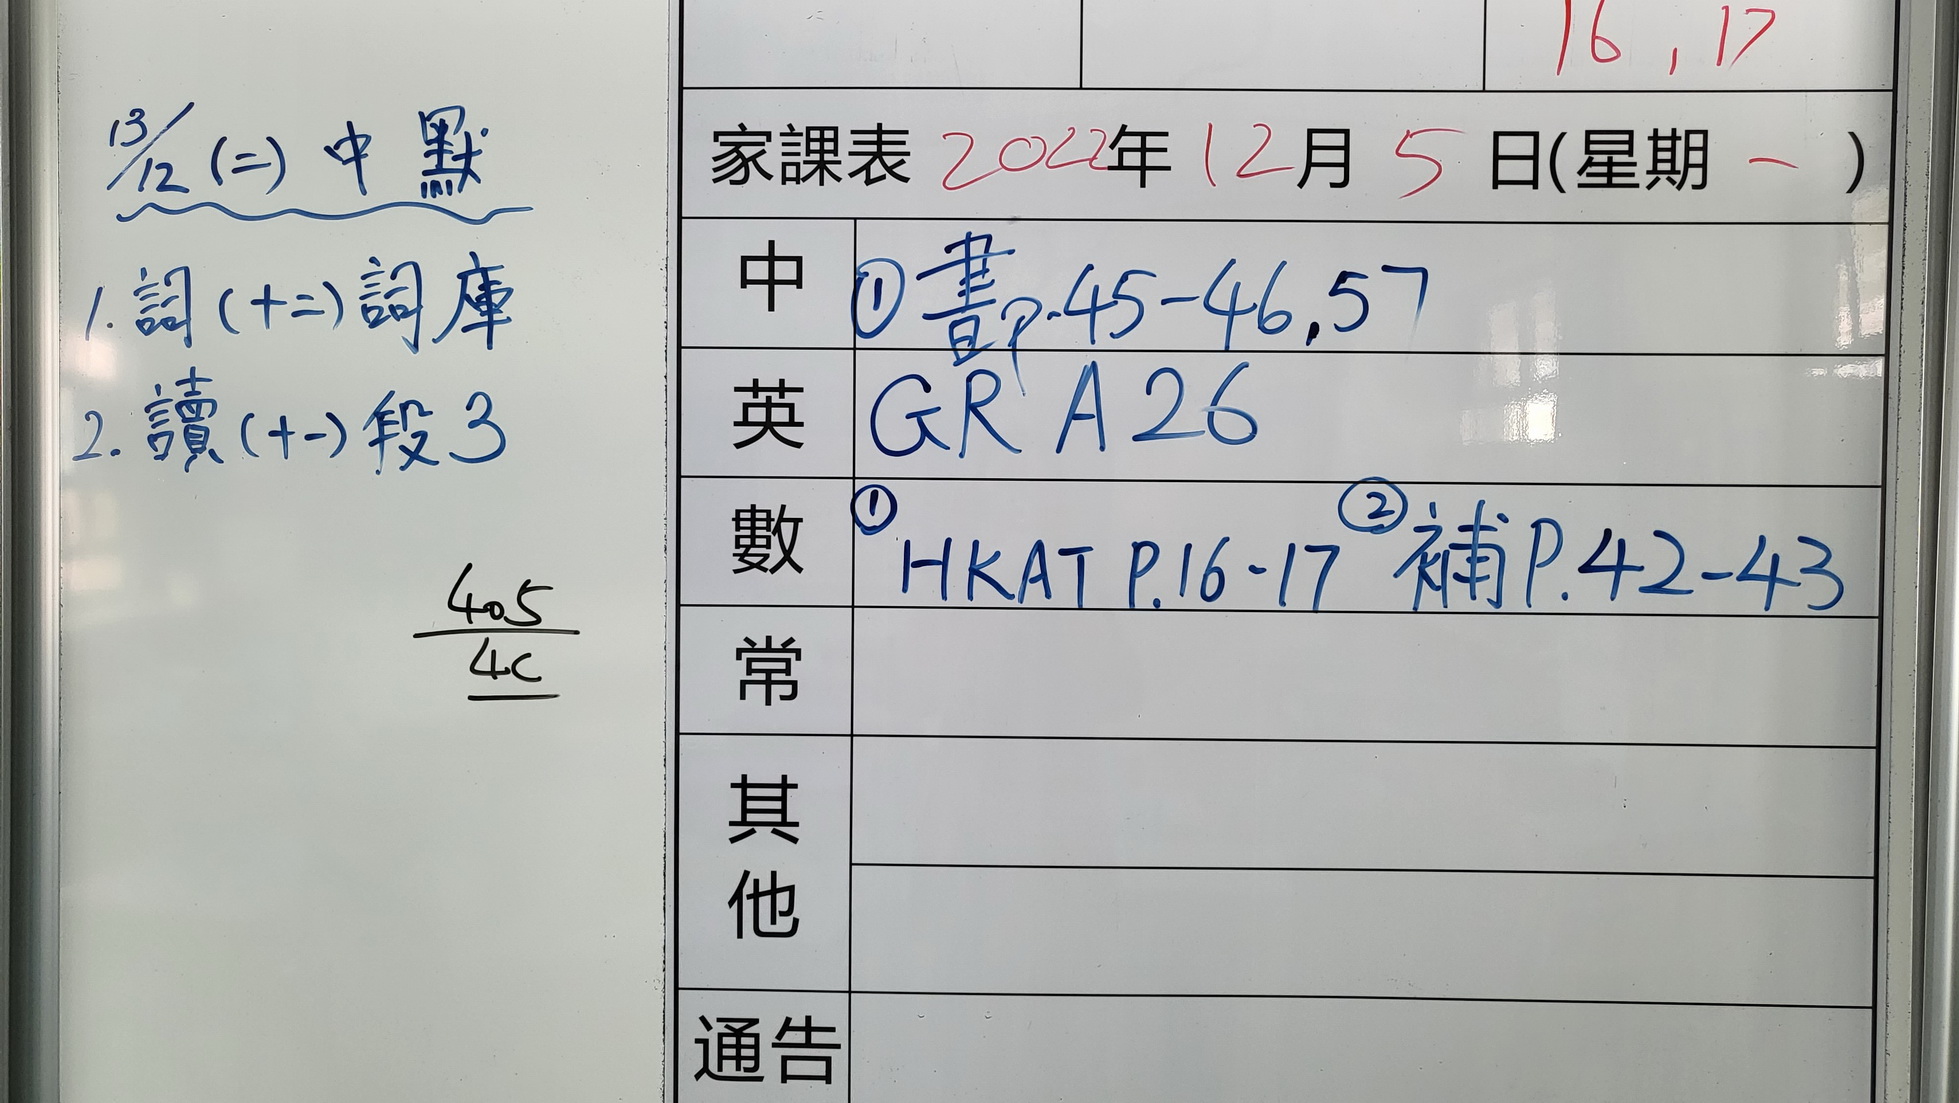 13/12 (二) 中默
1. 詞(十二)詞庫
2. 讀(十一)段3
405
4C
16, 17
家課表 2022年 12月 5日(星期一)
中 ①書p.45-46,57
英 GR A26
數 ①HKAT P.16-17 ②補P.42-43
常
其他
通告